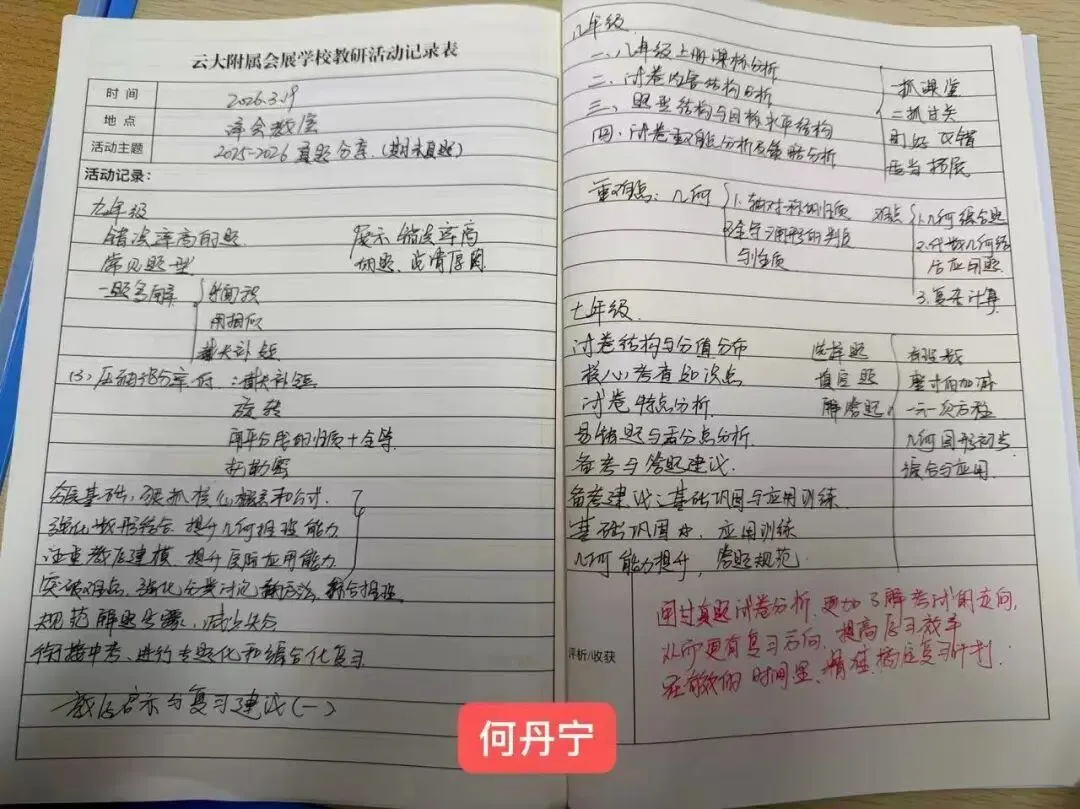 云大附属会展学校教研活动记录表
时间 2026.3.19
地点
活动主题 2025-2026真题分享(期末真题)
活动记录:
九年级
错误率高的题
展示错误率高
常见题型
的题、
一题多解
面积
用相似
截长补短
(3)、压轴部分 :截长补短
旋转
用平分线的性质+全等
勾勒密
基础,狠抓核心概念和公式
强化数形结合 提升几何推理能力
注重数学建模、提升实际应用能力
突破难点、强化分类讨论 综合推理
规范解题步骤、减少失分
衔接中考、进行专题化和综合化复习
教学启示与复习建议(一)
八年级
一、八年级上册课标分析
二、试卷内容结构分析
三、题型结构与目标水平结构
四、试卷重难点分析及策略分析
一抓课堂
二抓过关
适当拓展
重难点:几何
1.轴对称的性质
2.全等三角形的判定
与性质
难点
1.几何综合题
2.代数几何结
合应用题
3.复杂计算
七年级
试卷结构与分值分布
核心考查知识点
试卷特点分析
易错题与丢分点分析
备考与答题建议
选择题
填空题
解答题
有理数
整式的加减
一元一次方程
几何图形初步
综合与应用
备考建议:基础巩固与应用训练
基础巩固 应用训练
几何能力提升,答题规范
评析/收获
通过真题试卷分析,更加了解考试的方向,
从而更有复习方向,提高复习效率
在有效的时间里,精准 复习计划.
何丹宁